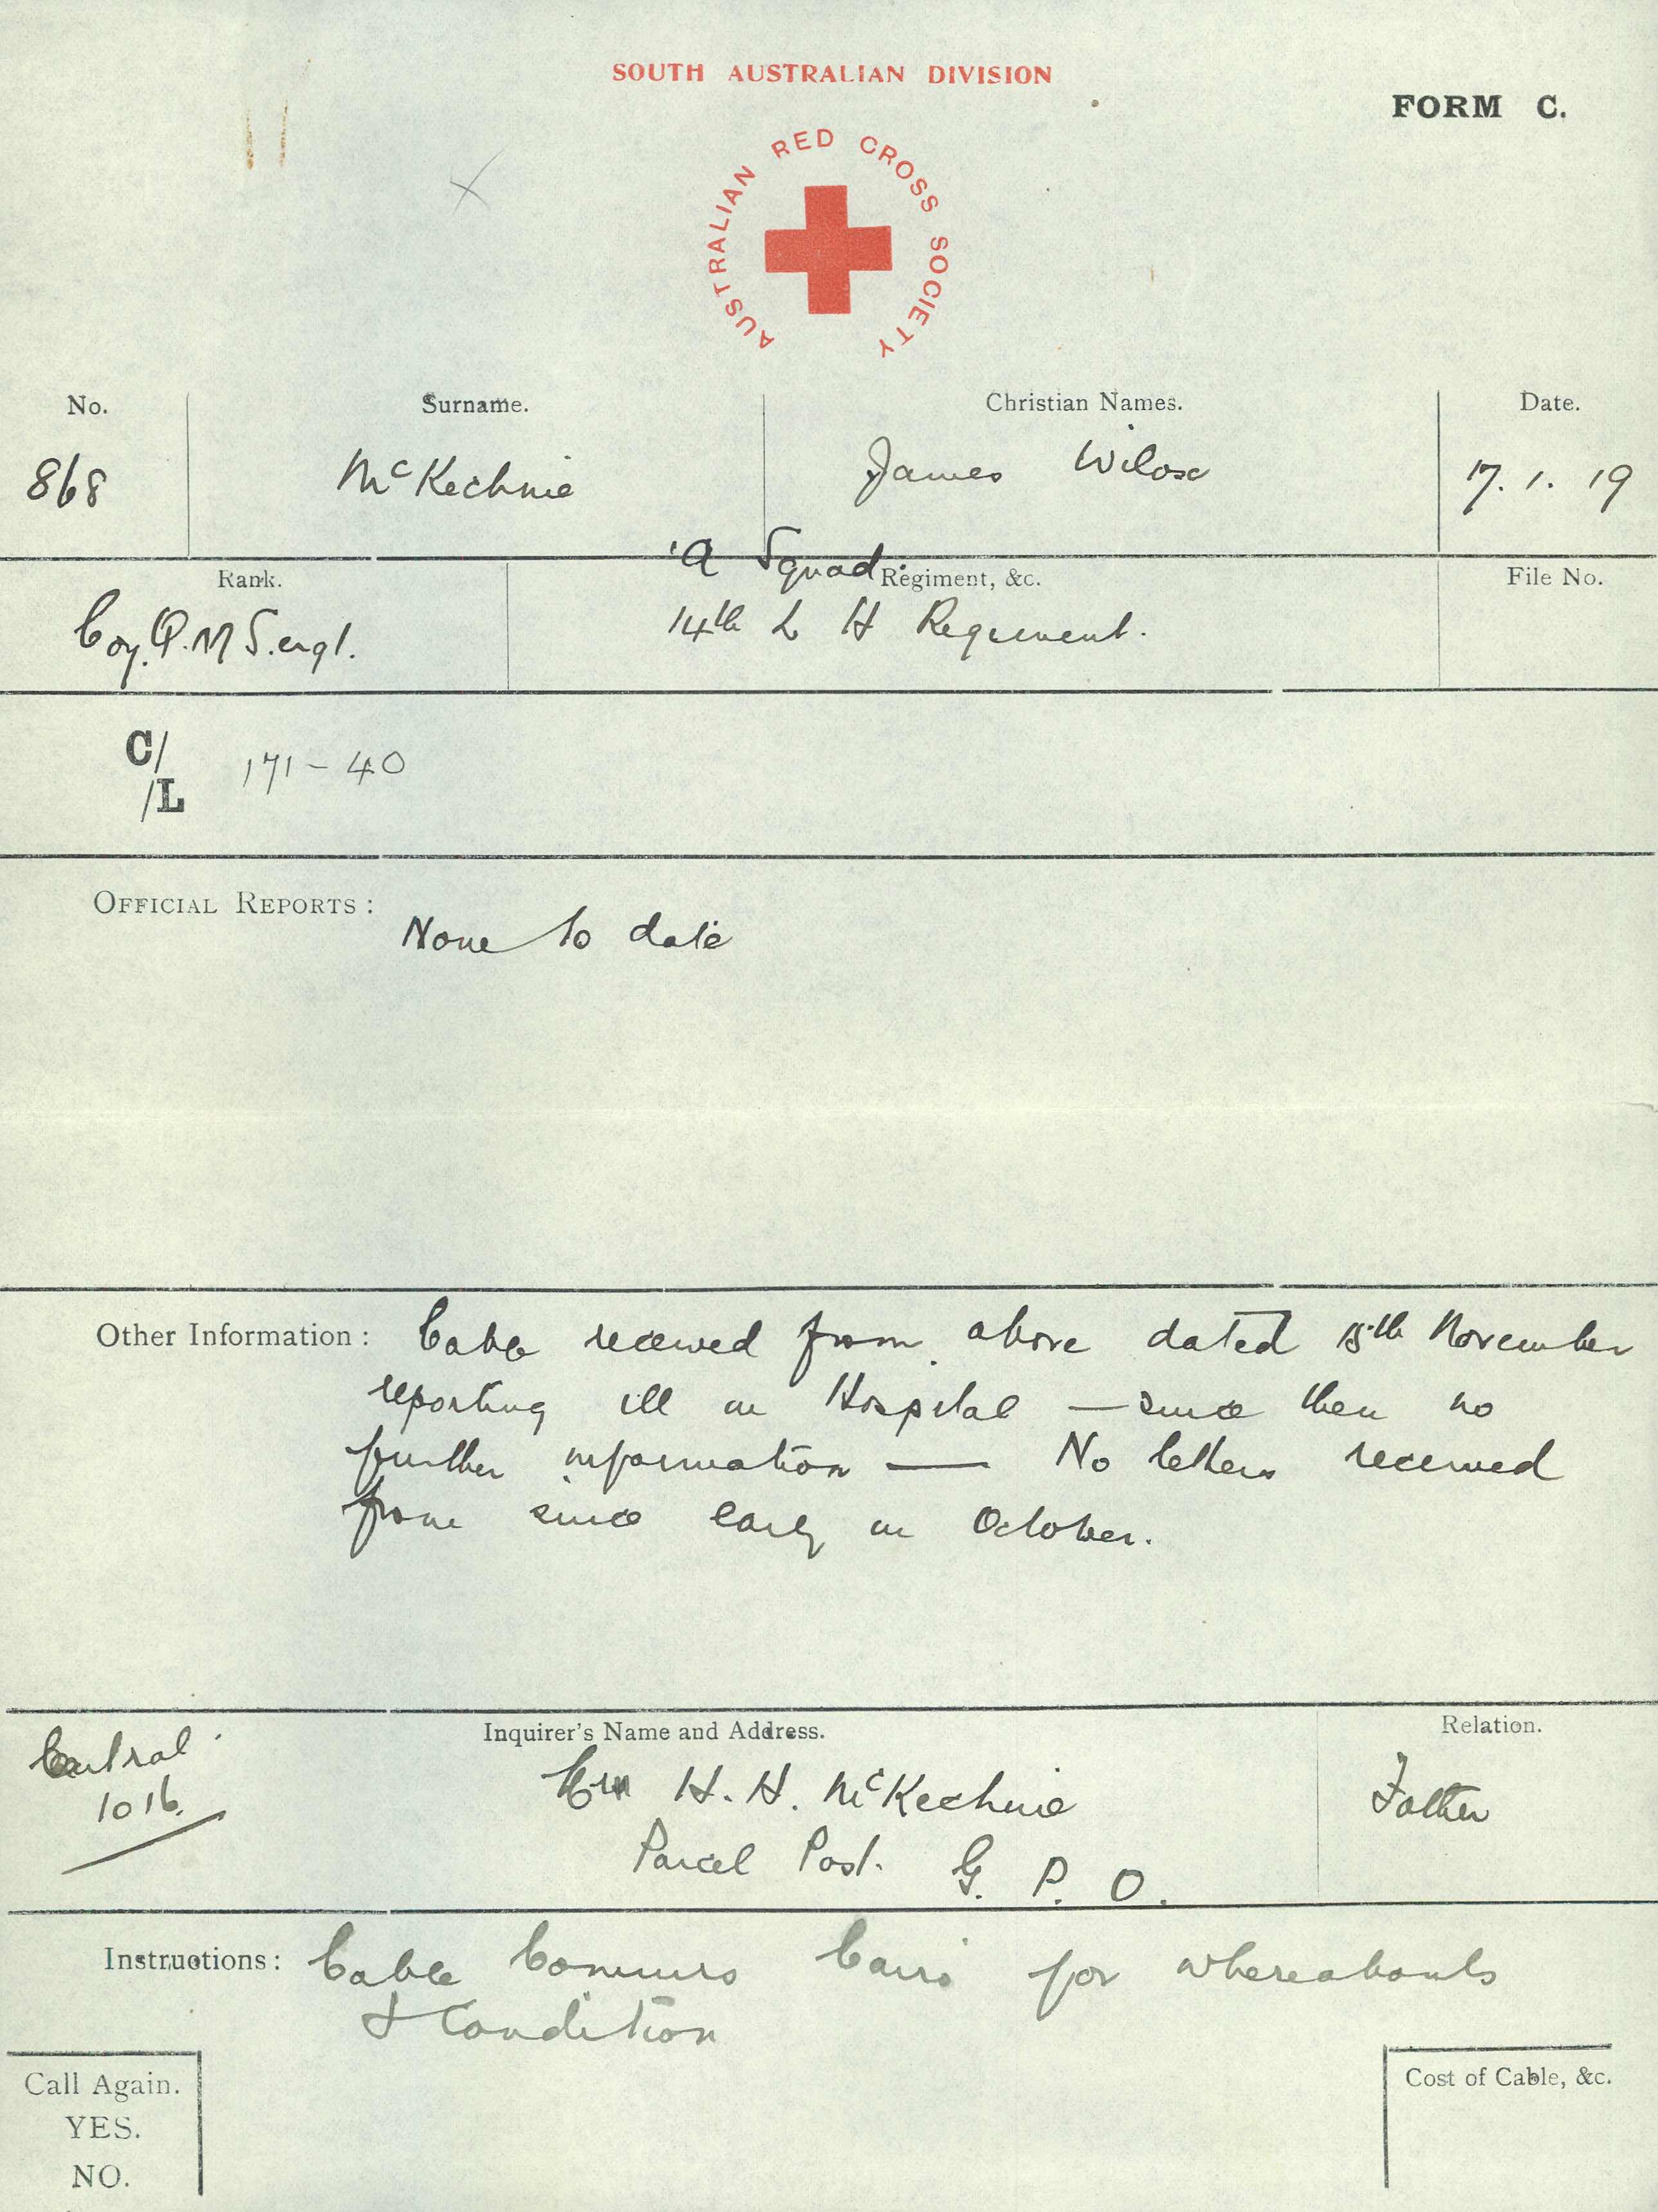 SOUTH AUSTRALIAN DIVISION
FORM C.
AUSTRALIAN RED CROSS SOCIETY
No. Surname. Christian Names. Date.
868 McKechnie James 17.1.19
'A Squad.
Rank. Regiment, &c. File No.
Coy. Q.M S.ergt. 14th L H Regiment.
C/
/L 171-40
OFFICIAL REPORTS: None to date
Other Information: Cable received from above dated 15th November
reporting ill in Hospital — since then no
further information — No letters received
from since early in October.
Central
1016.
Inquirer's Name and Address. Relation.
H. H. McKechnie Father
Parcel Post. G. P. O.
Instructions: Cable Commrs Cairo for whereabouts
& Condition
Call Again.
YES.
NO.
Cost of Cable, &c.